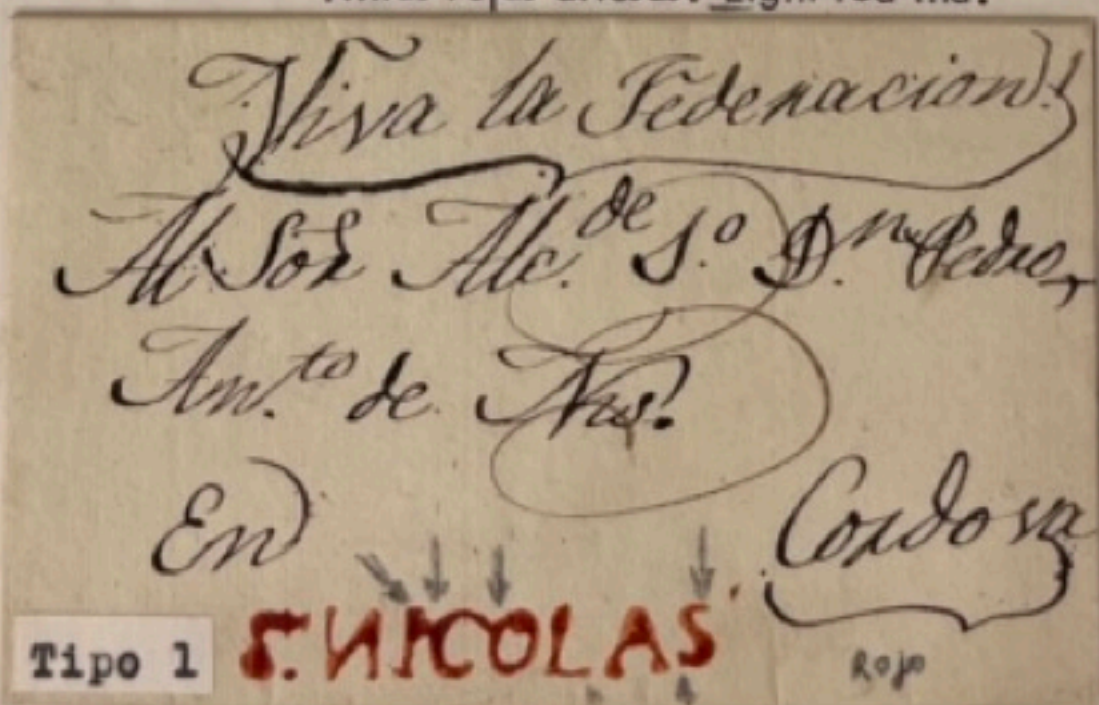 Viva la Federacion!
Al Sor Alc.de 1.o D.n Pedro
An.to de
En Cordova
Tipo 1 S. NICOLAS Rojo